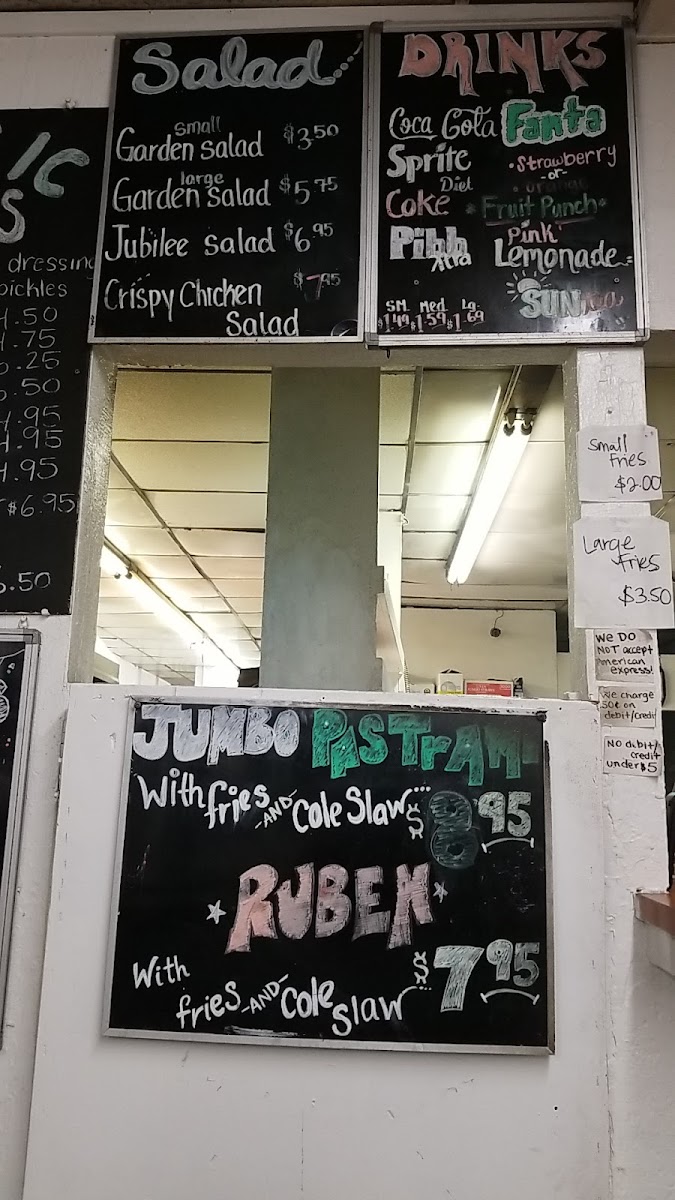 IC
S
dressing
pickles
4.50
4.75
5.25
.50
4.95
4.95
4.95
$6.95
5.50
Salad...
small
Garden salad $3.50
large
Garden salad $5.75
Jubilee salad $6.95
Crispy Chicken $7.95
Salad
DRINKS
Coca Cola Fanta
Sprite •Strawberry
-or-
Diet • orange
Coke •Fruit Punch•
Pibb Pink
Xtra Lemonade
SUN tea
SM. Med. Lg.
$1.49 $1.59 $1.69
Small
Fries
$2.00
Large
Fries
$3.50
We DO
NOT accept
American
express!
We charge
50¢ on
debit/credit
NO debit/
credit
under $5
JUMBO PASTrAMI
With fries -AND- Cole Slaw... $8.95
RUBEN
With
fries -AND- Cole
slaw... $7.95